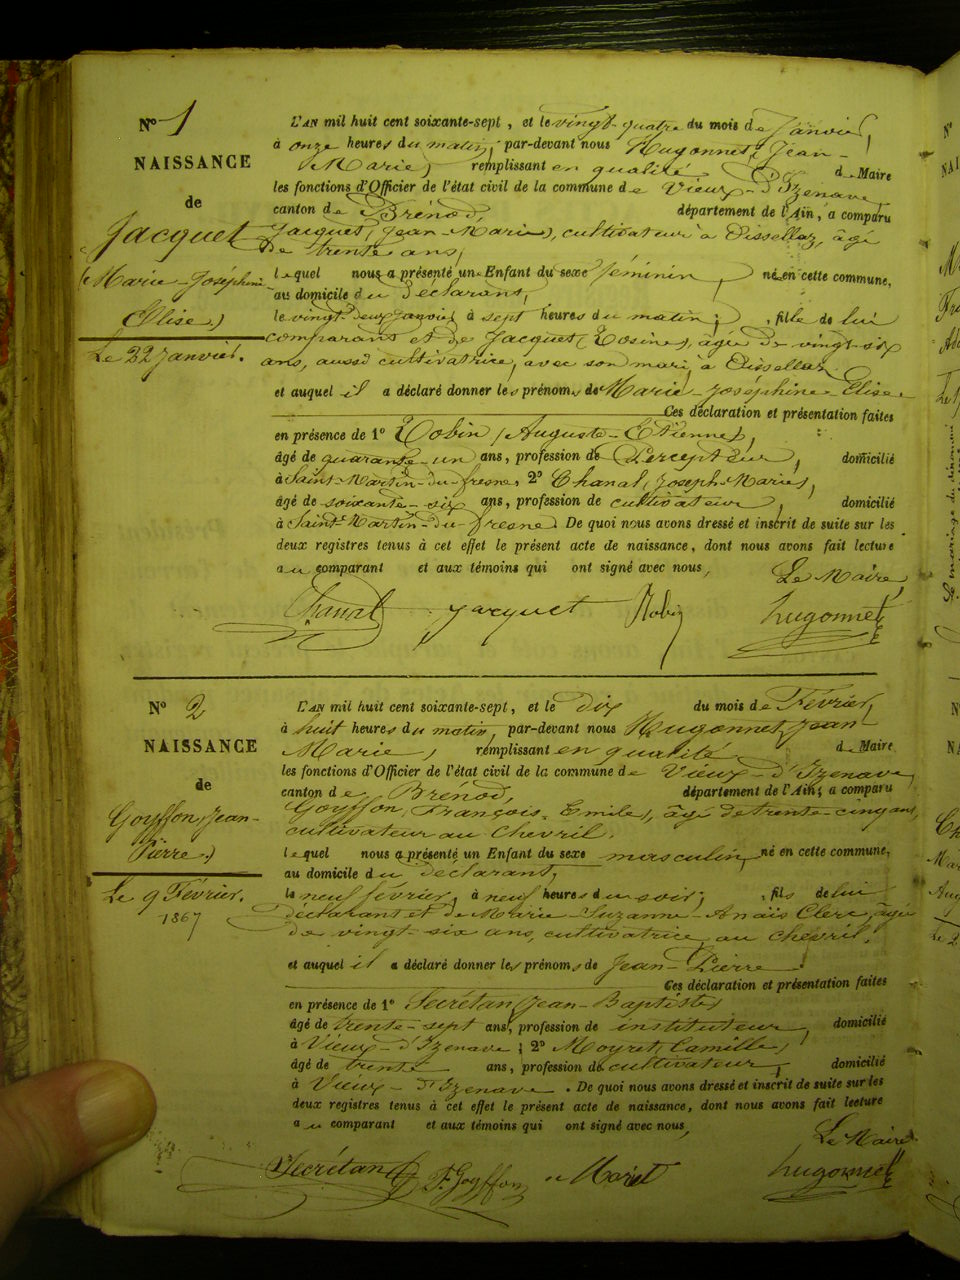 N° 1
NAISSANCE
de
Jacquet
(Marie-Joséphine
Elise.)
Le 22 Janvier.
L'AN mil huit cent soixante-sept, et le vingt-quatre du mois de Janvier,
à onze heures du matin, par-devant nous Hugonnet, Jean-
Marie, remplissant en qualité de Maire
les fonctions d'Officier de l'état civil de la commune de Vieux-d'Izenave,
canton de Brénod, département de l'Ain, a comparu
Jacquet, (Jean-Marie), cultivateur à Dissellaz, âgé
de trente ans,
lequel nous a présenté un Enfant du sexe féminin, né en cette commune,
au domicile du déclarant,
le vingt-deux janvier à sept heures du matin; , fille de lui
comparant et de Jacquet (Rosine), âgée de vingt-six
ans, aussi cultivatrice, avec son mari, à Dissellaz.
et auquel il a déclaré donner les prénoms de Marie-Joséphine-Elise.
Ces déclaration et présentation faites
en présence de 1° Robin (Auguste-Etienne),
âgé de quarante-un ans, profession de Percepteur, domicilié
à Saint-Martin-du-fresne, 2° Chanal, Joseph-Marie,
âgé de soixante-six ans, profession de cultivateur, domicilié
à Saint-Martin-du-fresne. De quoi nous avons dressé et inscrit de suite sur les
deux registres tenus à cet effet le présent acte de naissance, dont nous avons fait lecture
au comparant et aux témoins qui ont signé avec nous,
Le Maire,
Chanal Jacquet Robin hugonnet
N° 2
NAISSANCE
de
Goyffon, Jean-
Pierre.)
Le 9 Février.
1867
L'AN mil huit cent soixante-sept, et le dix du mois de Février,
à huit heures du matin, par-devant nous Hugonnet, Jean
Marie, remplissant en qualité de Maire
les fonctions d'Officier de l'état civil de la commune de Vieux-d'Izenave,
canton de Brénod, département de l'Ain, a comparu
Goyffon, François-Emile, âgé de trente-cinq ans,
cultivateur au Chevril.
lequel nous a présenté un Enfant du sexe masculin, né en cette commune,
au domicile du déclarant,
le neuf février, à neuf heures du soir; , fils de lui
déclarant et de Marie-Suzanne-Anaïs Clerc, âgée
de vingt-six ans, cultivatrice au Chevril.
et auquel il a déclaré donner les prénoms de Jean-Pierre.
Ces déclaration et présentation faites
en présence de 1° Secrétan, Jean-Baptiste,
âgé de trente-sept ans, profession de instituteur, domicilié
à Vieux-d'Izenave; 2° Moyret, Camille,
âgé de trente ans, profession de cultivateur, domicilié
à Vieux-d'Izenave. De quoi nous avons dressé et inscrit de suite sur les
deux registres tenus à cet effet le présent acte de naissance, dont nous avons fait lecture
au comparant et aux témoins qui ont signé avec nous,
Le Maire
Secrétan F. Goyffon hugonnet